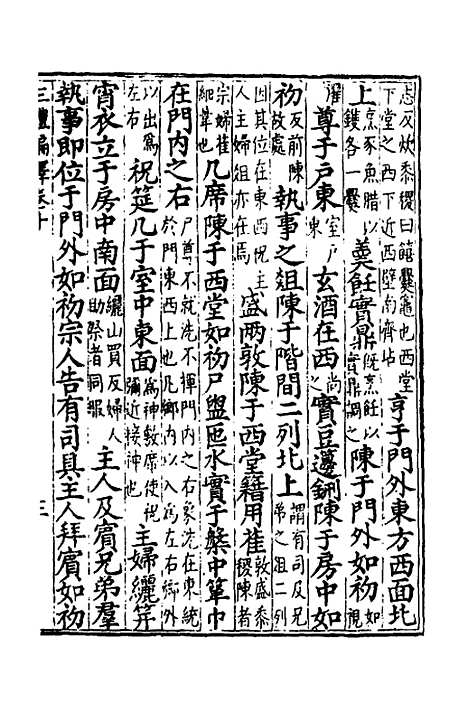 志反炊黍稷曰饎爨竈也西堂下堂之西下近西壁南齊坫亨于門外東方西面北
上烹豕魚腊以鑊各一爨羹飪實鼎既烹飪以實鼎謂之陳于門外如初如視
濯尊于戶東室戶東玄酒在西尚之實豆籩鉶陳于房中如
初反前陳故處執事之俎陳于階間二列北上謂有司及兄弟之俎二列
因其位在東西祝主人主婦俎亦在焉盛兩敦陳于西堂藉用萑敦盛黍稷陳者
宗婦萑細葦也几席陳于西堂如初尸盥匜水實于槃中簞巾
在門内之右尸尊不就洗不揮門内之右象洗在東統於門東西上也凡鄉内以入為左右鄉外
以出為左右祝筵几于室中東面為神敷席使祝彌近接神也主婦纚笄
宵衣立于房中南面纚山買反婦人助祭者同服主人及賓兄弟羣
執事即位于門外如初宗人告有司具主人拜賓如初
三禮編繹卷十 三